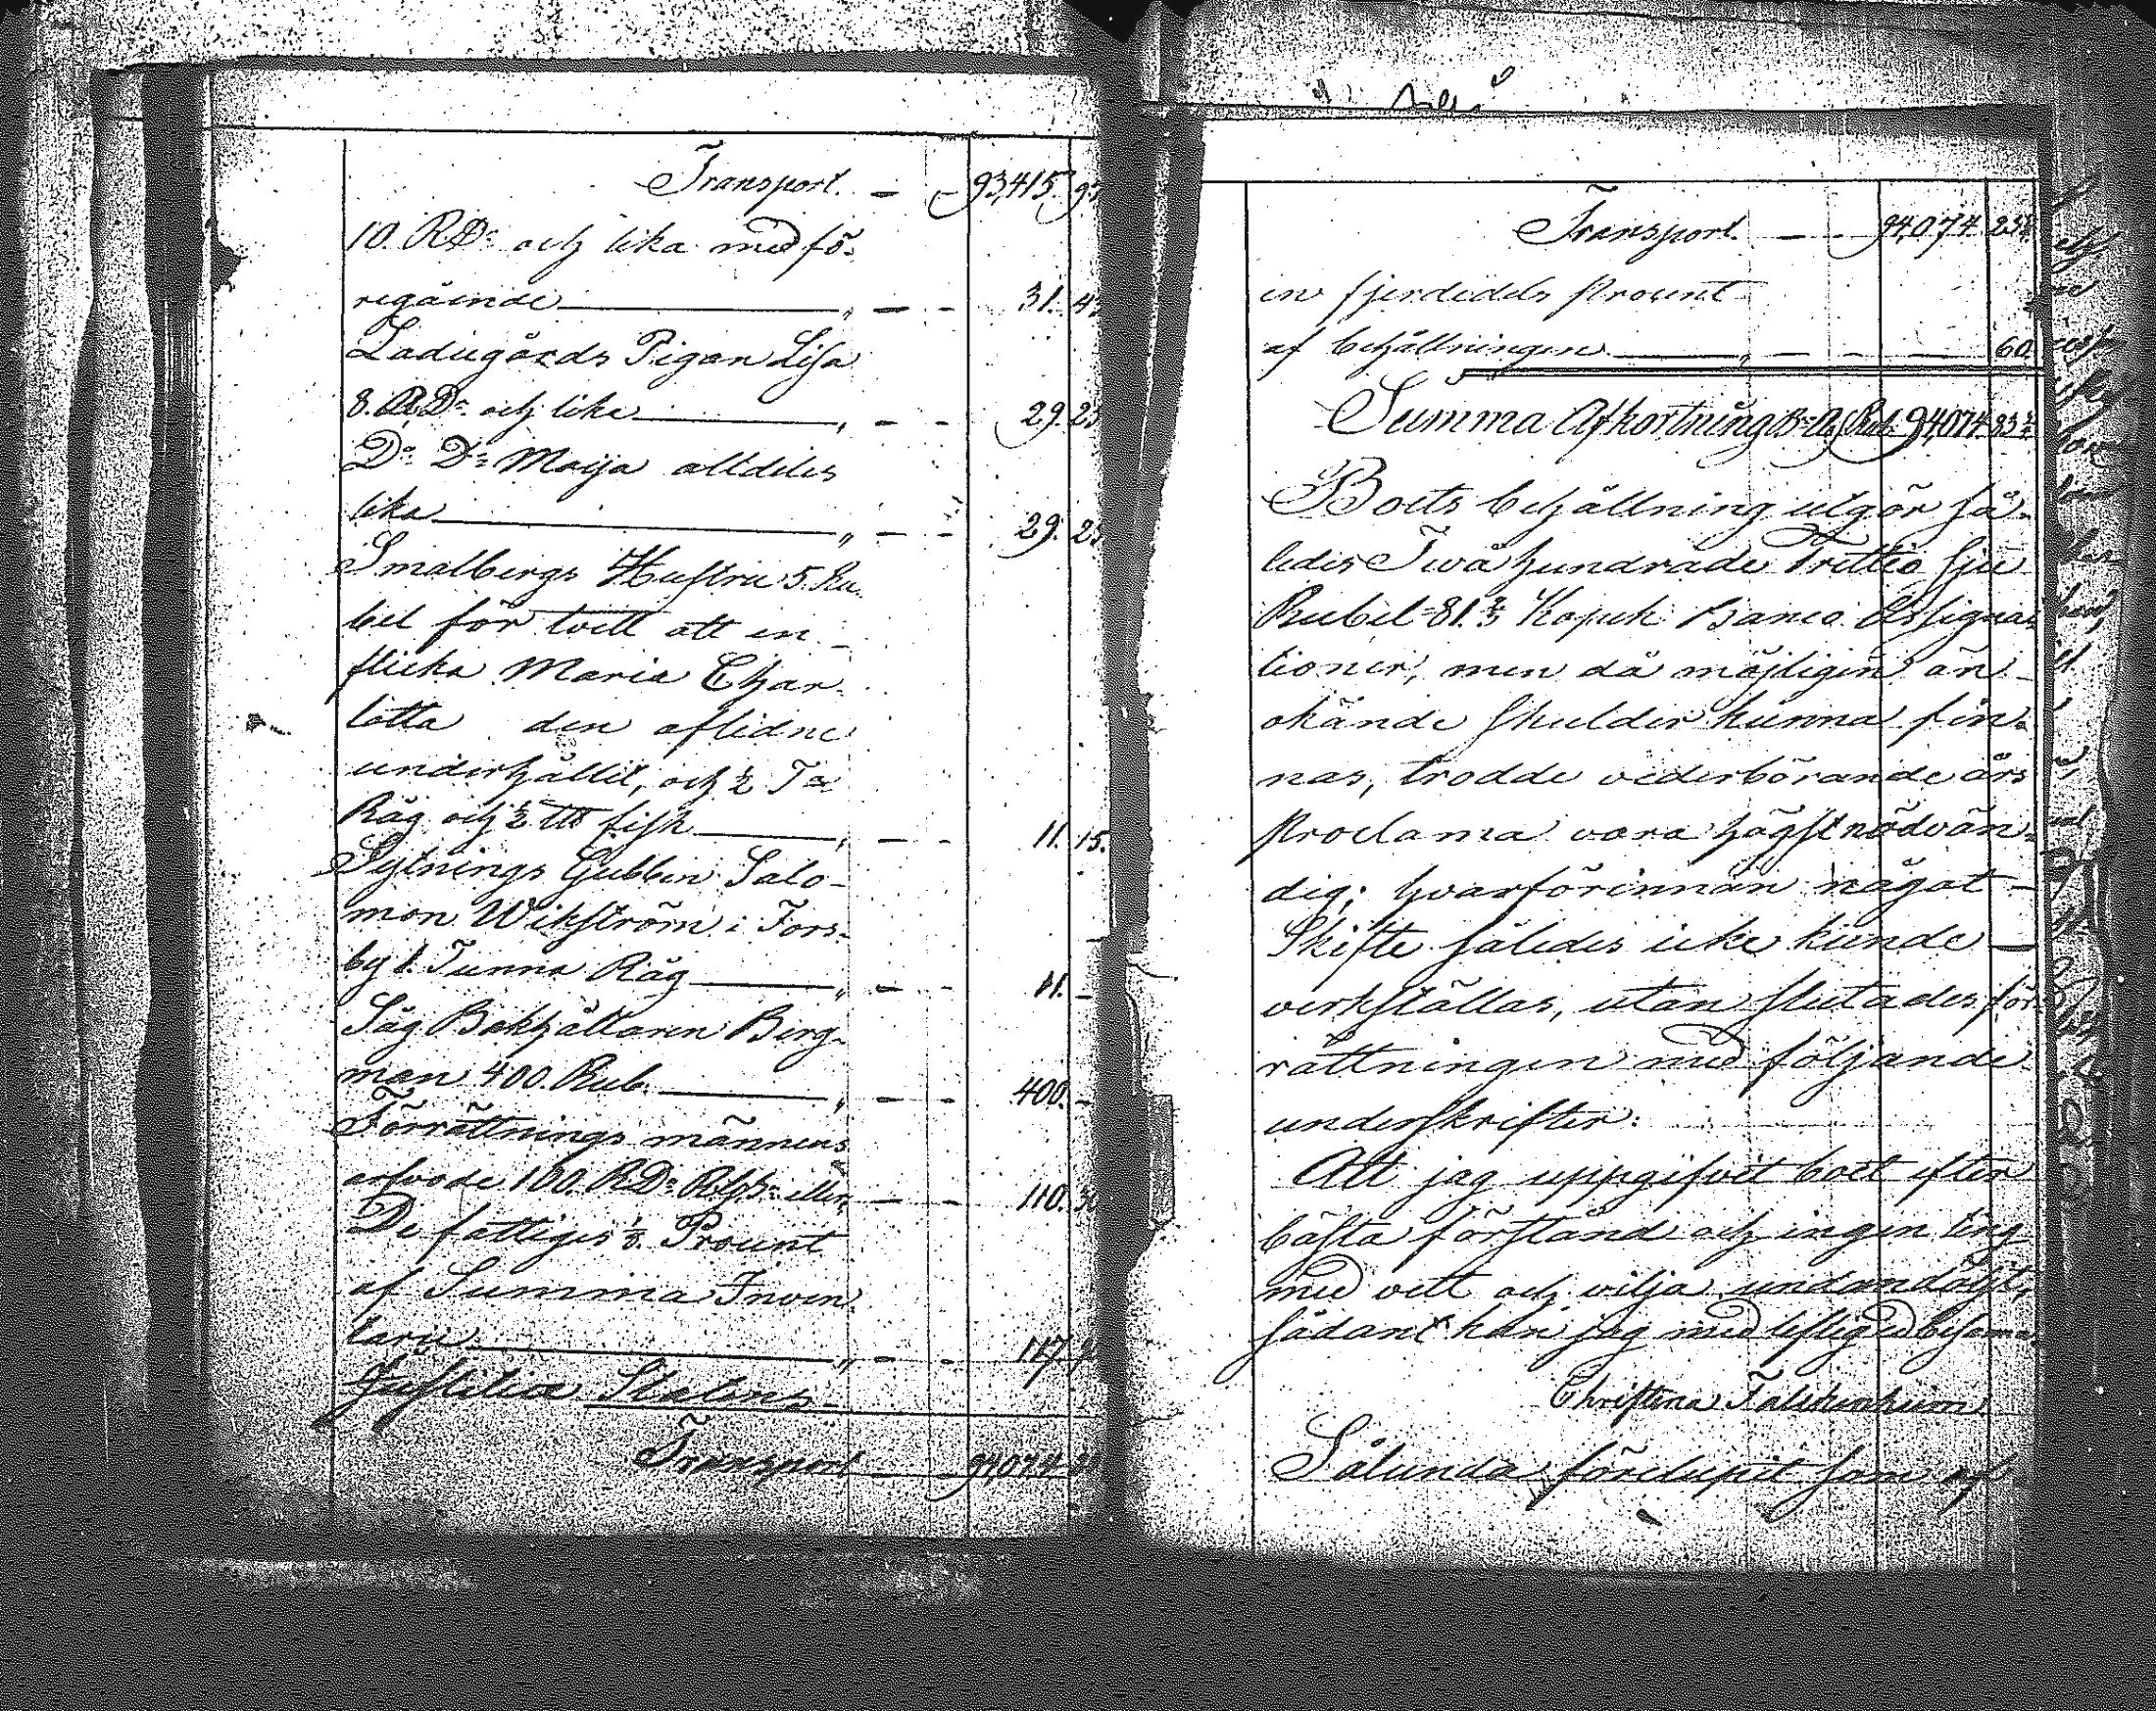 Transport. — 93,415. 95
10. RD:r och lika med fö-
regåinde — 31. 45
Ladugårds Pigan Lisa
8. R.D:r och lika — 29. 25
D:o D:o Maija alldeles
lika — 29. 25
Smalbergs Hustru 5. Ru-
bel för tvätt att en
flicka Maria Char-
lotta den aflidne
underhållit, och ½ T:a
Råg och ½ LU fisk — 11. 15.
Sytnings Gubben Salo-
mon Wikström i Fors-
by 1. Tunna Råg — 11. —
Såg Bokhållaren Berg-
man 400. Rub. — 400. —
Förrättnings männens
arfvode 100. RD:r Rgs:r eller — 110. 50
De fattiges ⅛. Procent
af Summa Inven-
tarii — 117.
Justitiæ Statens
Transport — 94,074
Transport. — 94,074 23¾
en fjerdedels Procent
af behållningen — 60.
Summa Afkortning B:o As. Rub. 94,074. 83¾
Boets behållning utgör så-
ledes Twå hundrade Trettio Sju
Rubel 81.¾ Kopek Banco Assigna-
tioner, men då möjligen än
okände skulder kunna fin-
nas, trodde vederbörande års
Proclama vara högst nödvän-
dig; hvarförinnan något
Skifte således icke kunde —
verkställas, utan slutades för-
rättningen med följande
underskrifter:
Att jag uppgifvit boet efter
bästa förstånd och ingen ting
med vett och vilja undandöljt,
sådant kan jag med liflig ed besanna,
Christina Falckenheim
Sålunda förelupit som af